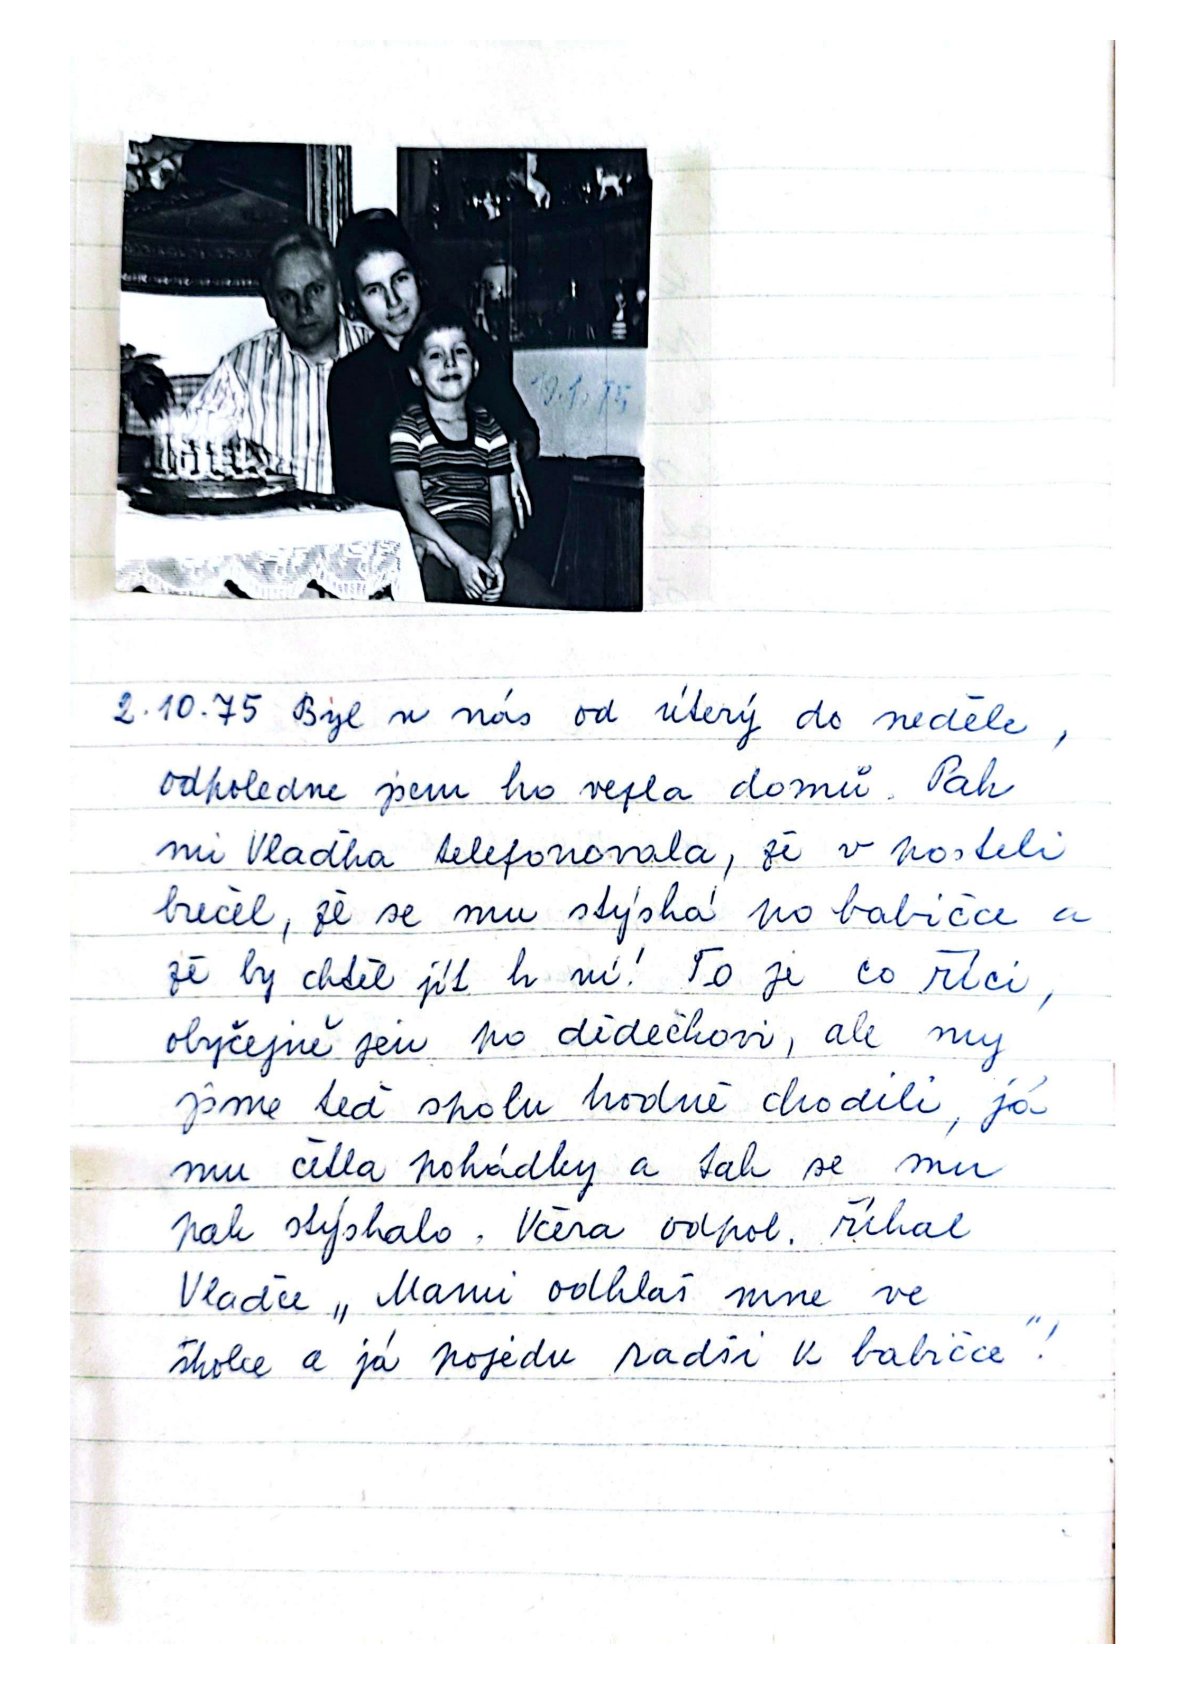 19.1.75
2.10.75 Byl u nás od úterý do neděle,
odpoledne jsem ho vezla domů. Pak
mi Vlaďka telefonovala, že v posteli
brečel, že se mu stýská po babičce a
že by chtěl jít k ní! To je co říci,
obyčejně jen po dědečkovi, ale my
jsme teď spolu hodně chodili, já
mu četla pohádky a tak se mu
pak stýskalo. Včera odpol. říkal
Vlaďce „Mami odhlaš mne ve
školce a já pojedu radši k babičce"!